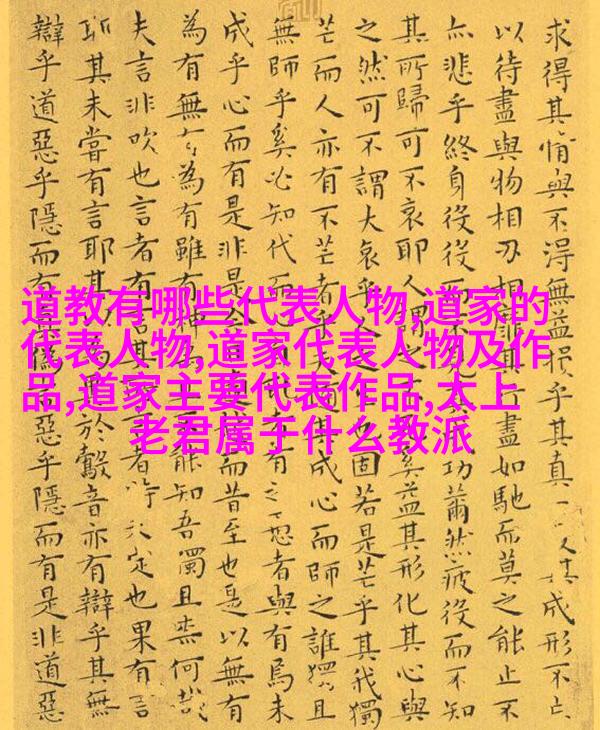 道教有哪些代表人物,道家的
代表人物,道家代表人物及作
品,道家主要代表作品,太上
老君属于什么教派
求得其情與不得無益損乎其真其成形不亡
以待盡與物相刃相靡其行盡如馳而莫之能止不
亦悲乎終身役役而不見其功薾然疲役而不知
其所歸可不哀耶人謂之不奚益其形化其心與
之然可不謂大哀乎人之固若是芒乎其我獨
芒而人亦有不芒者乎夫隨其成心而師之誰獨且
無師乎奚必知代而心者有之愚者與有焉未
成乎心而有是非是今日適越而昔至也是以無有
為有無〻為有雖有神能知吾獨且柰何哉
夫言非吹也言者有言者特未定也果有言
耶其未嘗有言耶其以為異於鷇音亦有辯乎其無
辯乎道惡乎隱而有真偽惡乎隱而有是非道惡